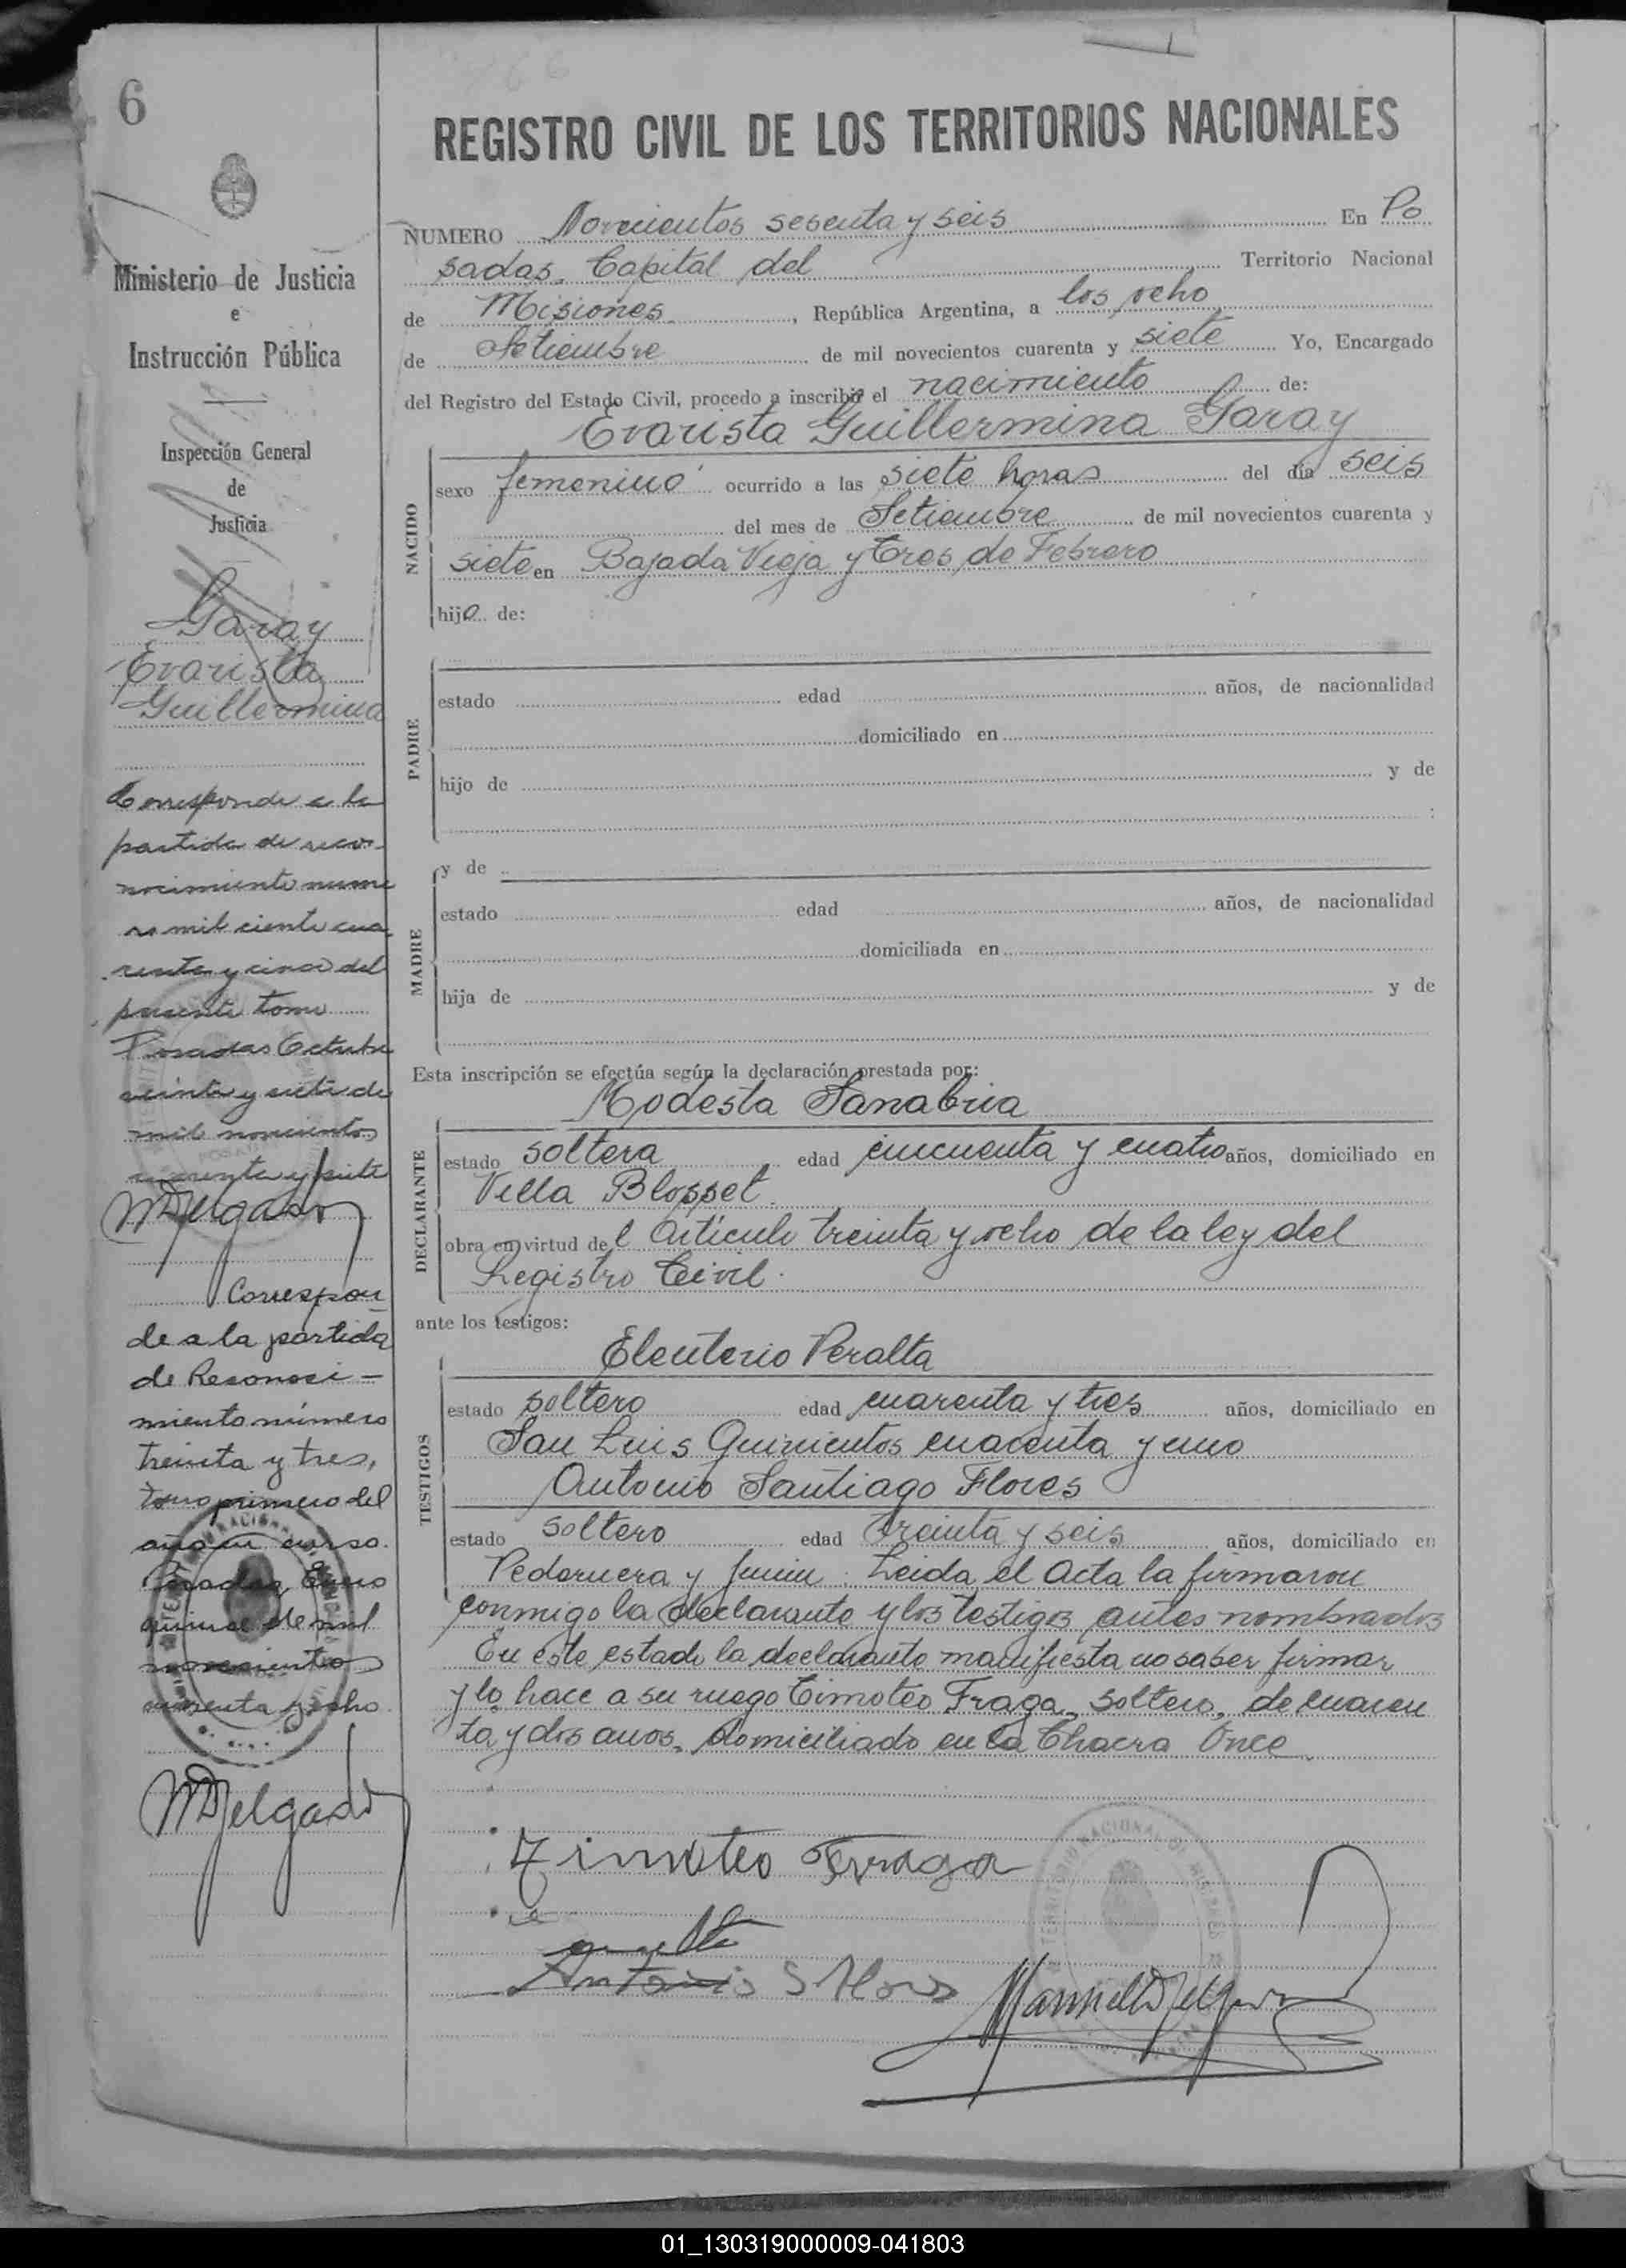 6
REGISTRO CIVIL DE LOS TERRITORIOS NACIONALES
Ministerio de Justicia
e
Instrucción Pública
Inspección General
de
Justicia
Garay
Evarista
Guillermina
Corresponde a la
partida de reco-
nocimiento nume
ro mil ciento cua
renta y cinco del
presente tomo
Posadas Octubre
veinte y siete de
mil novecientos
cuarenta y siete
MDelgado
Correspon
de a la partida
de Reconoci-
miento número
treinta y tres,
tomo primero del
año en curso.
Posadas, Enero
quince de mil
novecientos
cuarenta y ocho
MDelgado
NUMERO Novecientos sesenta y seis En Po
sadas, Capital del Territorio Nacional
de Misiones, República Argentina, a los ocho
de Setiembre de mil novecientos cuarenta y siete Yo, Encargado
del Registro del Estado Civil, procedo a inscribir el nacimiento de:
Evarista Guillermina Garay
NACIDO
sexo femenino ocurrido a las siete horas del día seis
del mes de Setiembre de mil novecientos cuarenta y
siete en Bajada Vieja y Tres de Febrero
hija de:
PADRE
estado edad años, de nacionalidad
domiciliado en
hijo de y de
:
y de
MADRE
estado edad años, de nacionalidad
domiciliada en
hija de y de
Esta inscripción se efectúa según la declaración prestada por:
Modesta Sanabria
DECLARANTE
estado soltera edad cincuenta y cuatro años, domiciliado en
Villa Blosset
obra en virtud del Artículo treinta y ocho de la ley del
Registro Civil.
ante los testigos:
Eleuterio Peralta
TESTIGOS
estado soltero edad cuarenta y tres años, domiciliado en
San Luis Quinientos cuarenta y uno
Antonio Santiago Flores
estado soltero edad treinta y seis años, domiciliado en
Pedernera y Junin. Leida el Acta la firmaron
conmigo la declarante y los testigos antes nombrados
En este estado la declarante manifiesta no saber firmar
y lo hace a su ruego Timoteo Fraga, soltero, de cuaren
ta y dos anos, domiciliado en la Chacra Once
Timoteo Frraga
Antonio S Flores
Manuel D Delgado
01_130319000009-041803